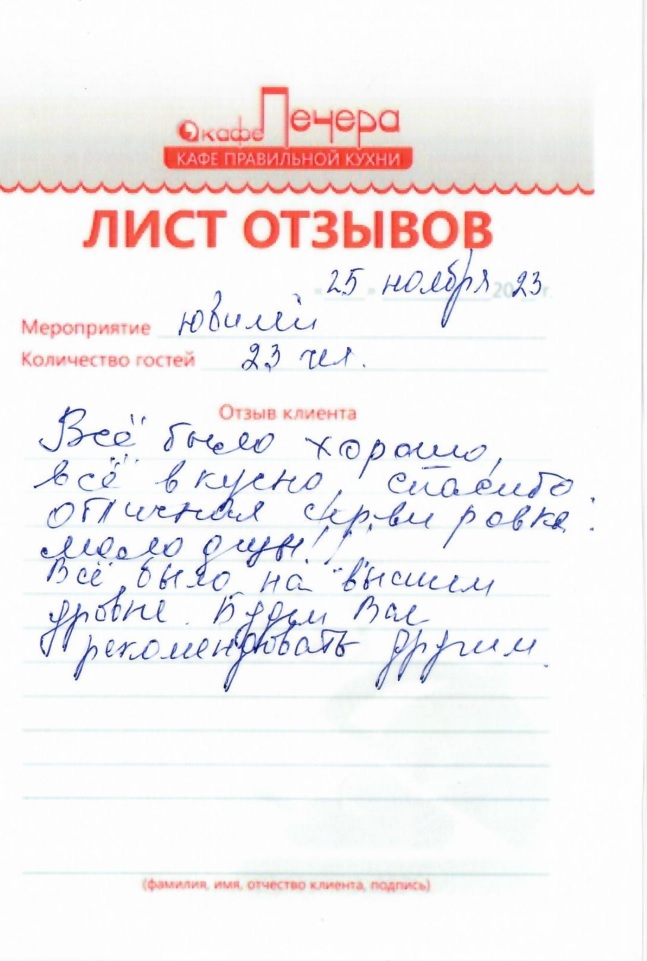 кафе Печера
КАФЕ ПРАВИЛЬНОЙ КУХНИ
ЛИСТ ОТЗЫВОВ
« 25 » ноября 2023 г.
Мероприятие юбилей
Количество гостей 23 чел.
Отзыв клиента
Всё было хорошо,
всё вкусно, спасибо.
Отличная сервировка.
молодцы!!
Всё было на "высшем
уровне. Будем Вас
рекомендовать другим.
(фамилия, имя, отчество клиента, подпись)